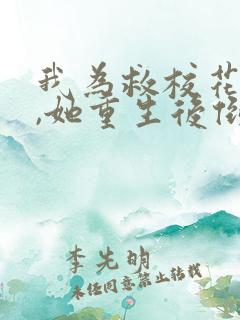 我为救校花
,她重生后
李先明
未经同意禁止转载